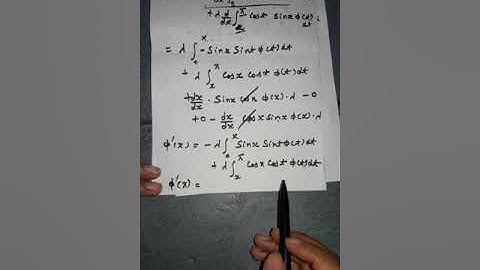 + λ d/dx ∫_x^π cost Sinx ϕ(t) dt
= λ ∫_0^x -Sinx Sint ϕ(t) dt
+ λ ∫_x^π Cosx cost ϕ(t) dt
+ dx/dx · Sinx cosx ϕ(x) · λ - 0
+ 0 - dx/dx Cosx Sinx ϕ(x) · λ
ϕ'(x) = - λ ∫_0^x Sinx Sint ϕ(t) dt
+ λ ∫_x^π Cosx cost ϕ(t) dt
ϕ'(x) =